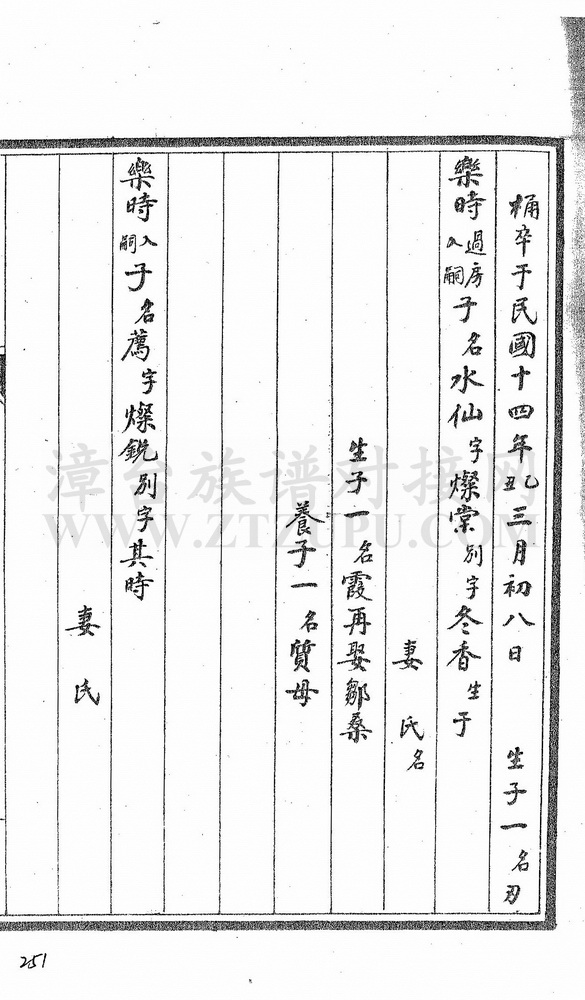 桶卒于民國十四年乙丑三月初八日 生子一名刃
樂時過房入嗣子名水仙字燦棠別字冬香生于
妻 氏名
生子一名霞再娶鄒桑
養子一名質母
樂時入嗣子名薦字燦銳別字其時
妻 氏
漳台族谱对接网
WWW.ZTZUPU.COM
251